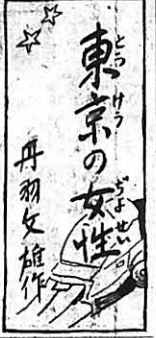 東京の女性
とうけうぢよせい
丹羽文雄作